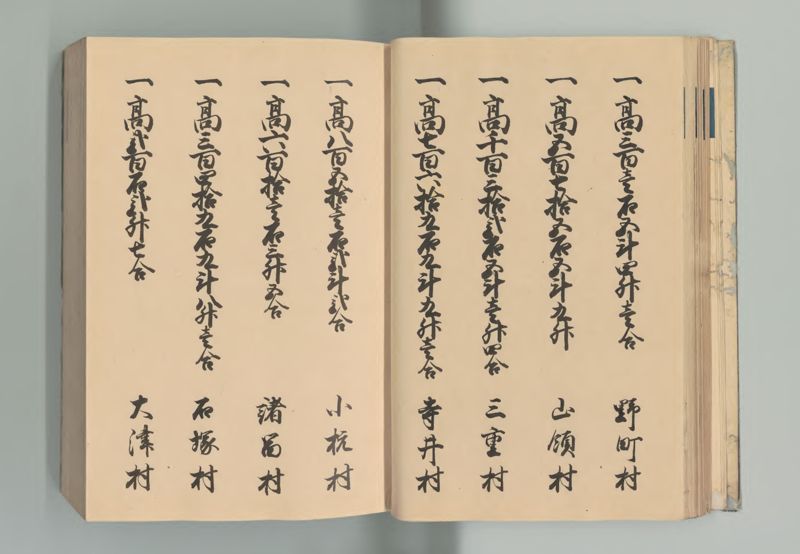 一高三百壱石五斗四升壱合 野町村
一高五百七拾五石五斗九升 山領村
一高千百三拾弐石五斗壱升四合 三重村
一高七百六拾五石九斗九升壱合 寺井村
一高八百五拾壱石弐斗弐合 小杭村
一高六百拾壱石三升五合 諸冨村
一高三百四拾五石九斗八升壱合 石塚村
一高弐百石弐升七合 大津村